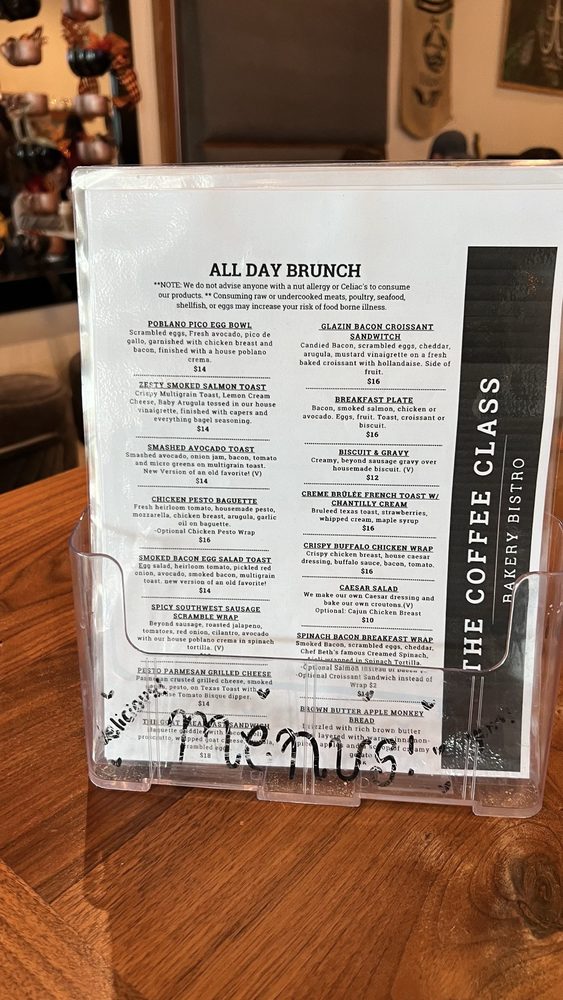 ALL DAY BRUNCH
**NOTE: We do not advise anyone with a nut allergy or Celiac's to consume
our products. ** Consuming raw or undercooked meats, poultry, seafood,
shellfish, or eggs may increase your risk of food borne illness.
POBLANO PICO EGG BOWL
Scrambled eggs, Fresh avocado, pico de
gallo, garnished with chicken breast and
bacon, finished with a house poblano
crema.
$14
ZESTY SMOKED SALMON TOAST
Crispy Multigrain Toast, Lemon Cream
Cheese, Baby Arugula tossed in our house
vinaigrette, finished with capers and
everything bagel seasoning.
$14
SMASHED AVOCADO TOAST
Smashed avocado, onion jam, bacon, tomato
and micro greens on multigrain toast.
New Version of an old favorite! (V)
$14
CHICKEN PESTO BAGUETTE
Fresh heirloom tomato, housemade pesto,
mozzarella, chicken breast, arugula, garlic
oil on baguette.
-Optional Chicken Pesto Wrap
$16
SMOKED BACON EGG SALAD TOAST
Egg salad, heirloom tomato, pickled red
onion, avocado, smoked bacon, multigrain
toast. new version of an old favorite!
$14
SPICY SOUTHWEST SAUSAGE
SCRAMBLE WRAP
Beyond sausage, roasted jalapeno,
tomatoes, red onion, cilantro, avocado
with our house poblano crema in spinach
tortilla. (V)
PESTO PARMESAN GRILLED CHEESE
crusted grilled cheese, smoked
pesto, on Texas Toast with
Tomato Bisque dipper.
$14
THE GOAT BREAKFAST SANDWICH
Baguette
prosciutto, whipped goat cheese,
scrambled eggs
$18
GLAZIN BACON CROISSANT
SANDWITCH
Candied Bacon, scrambled eggs, cheddar,
arugula, mustard vinaigrette on a fresh
baked croissant with hollandaise. Side of
fruit.
$16
BREAKFAST PLATE
Bacon, smoked salmon, chicken or
avocado. Eggs, fruit. Toast, croissant or
biscuit.
$16
BISCUIT & GRAVY
Creamy, beyond sausage gravy over
housemade biscuit. (V)
$12
CREME BRÛLÉE FRENCH TOAST W/
CHANTILLY CREAM
Bruleed texas toast, strawberries,
whipped cream, maple syrup
$16
CRISPY BUFFALO CHICKEN WRAP
Crispy chicken breast, house caesar
dressing, buffalo sauce, bacon, tomato.
$16
CAESAR SALAD
We make our own Caesar dressing and
bake our own croutons.(V)
Optional: Cajun Chicken Breast
$10
SPINACH BACON BREAKFAST WRAP
Smoked Bacon, scrambled eggs, cheddar,
Chef Beth's famous Creamed Spinach,
wrapped in Spinach Tortilla.
-Optional Salmon instead of Bacon
-Optional Croissant Sandwich instead of
Wrap $2
BROWN BUTTER APPLE MONKEY
BREAD
with rich brown butter
layered with warm
apples and
THE COFFEE CLASS
BAKERY BISTRO
delicious
menus!